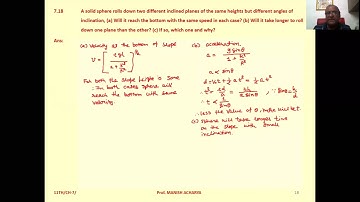 7.18 A solid sphere rolls down two different inclined planes of the same heights but different angles of
inclination, (a) Will it reach the bottom with the same speed in each case? (b) Will it take longer to roll
down one plane than the other? (c) If so, which one and why?
Ans:
(a) Velocity at the bottom of slope
v = [2gh / 1 + k²/R²]^½
For both the slope height is same
∴ In both cases sphere will
reach the bottom with same
velocity.
(b) acceleration
a = g sinθ / 1 + k²/R²
a ∝ sinθ
∴ less the value of θ, more will be t.
(c) Sphere will take longer time
on the slope with small
inclination.
11TH/CH-7/ Prof. MANISH ACHARYA 19